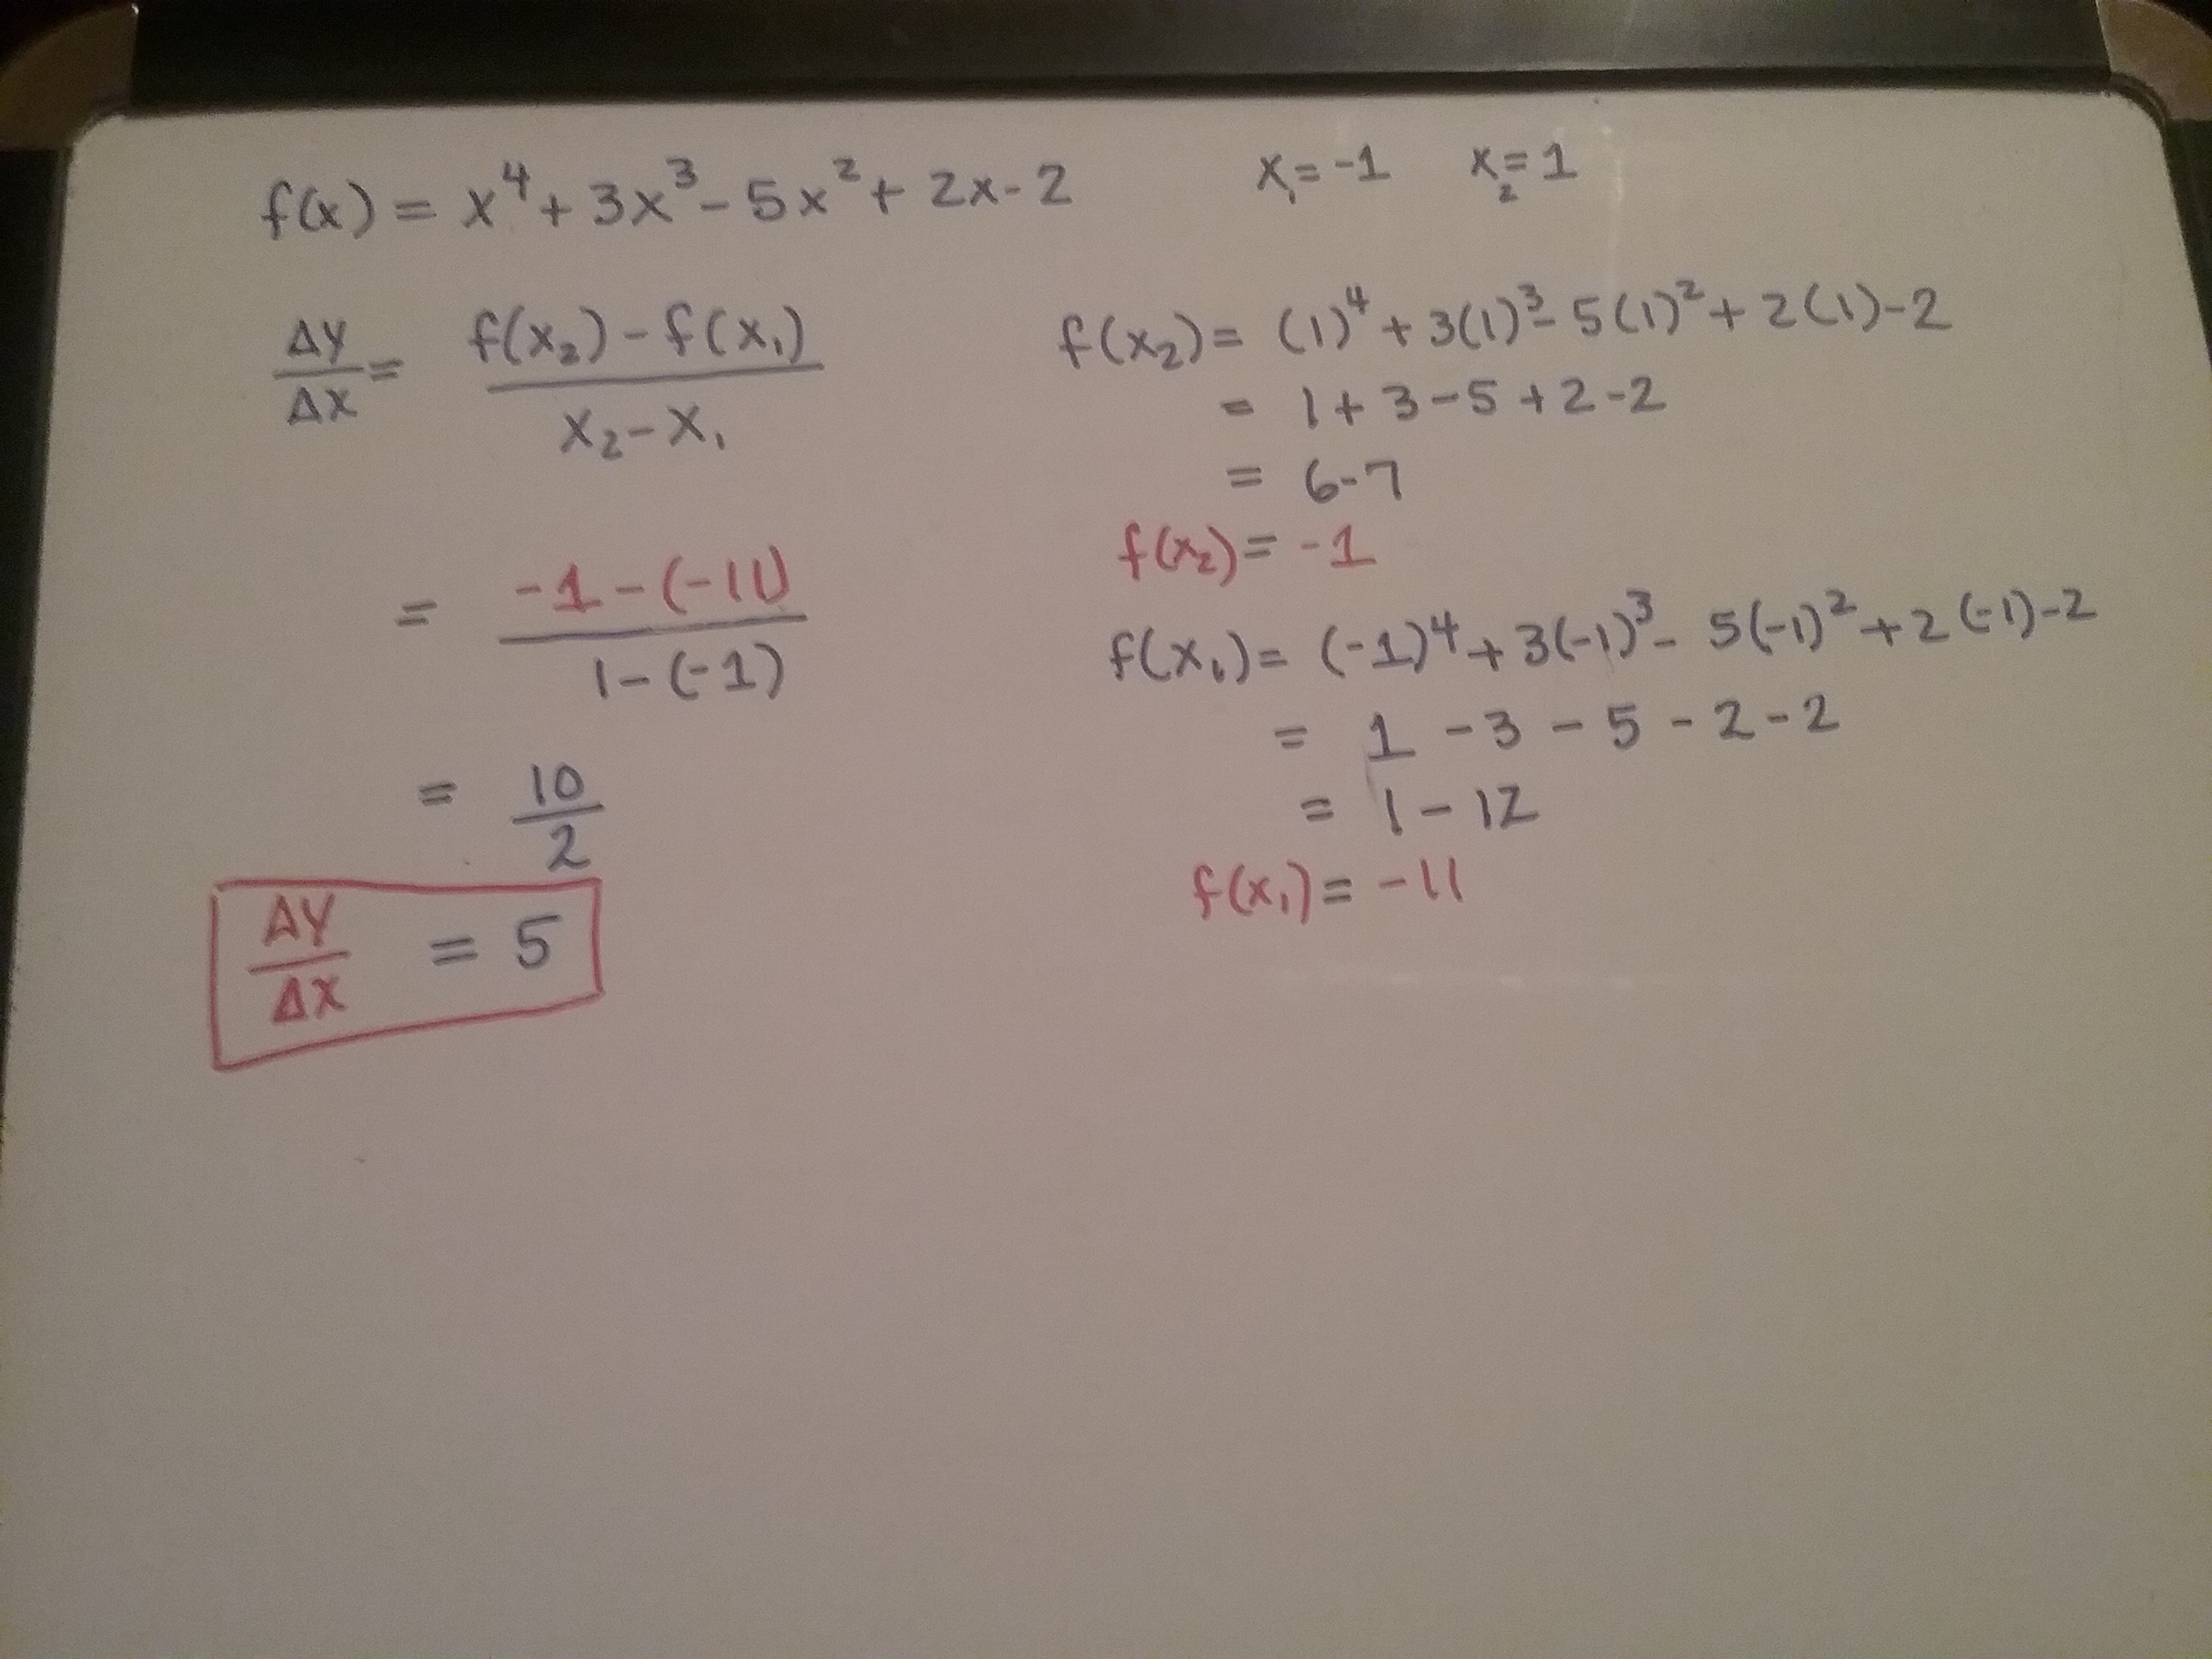 f(x) = x⁴ + 3x³ - 5x² + 2x - 2    x₁ = -1    x₂ = 1
Δy/Δx = (f(x₂) - f(x₁))/(x₂ - x₁)
= (-1 - (-11))/(1 - (-1))
= 10/2
Δy/Δx = 5
f(x₂) = (1)⁴ + 3(1)³ - 5(1)² + 2(1) - 2
= 1 + 3 - 5 + 2 - 2
= 6 - 7
f(x₂) = -1
f(x₁) = (-1)⁴ + 3(-1)³ - 5(-1)² + 2(-1) - 2
= 1 - 3 - 5 - 2 - 2
= 1 - 12
f(x₁) = -11